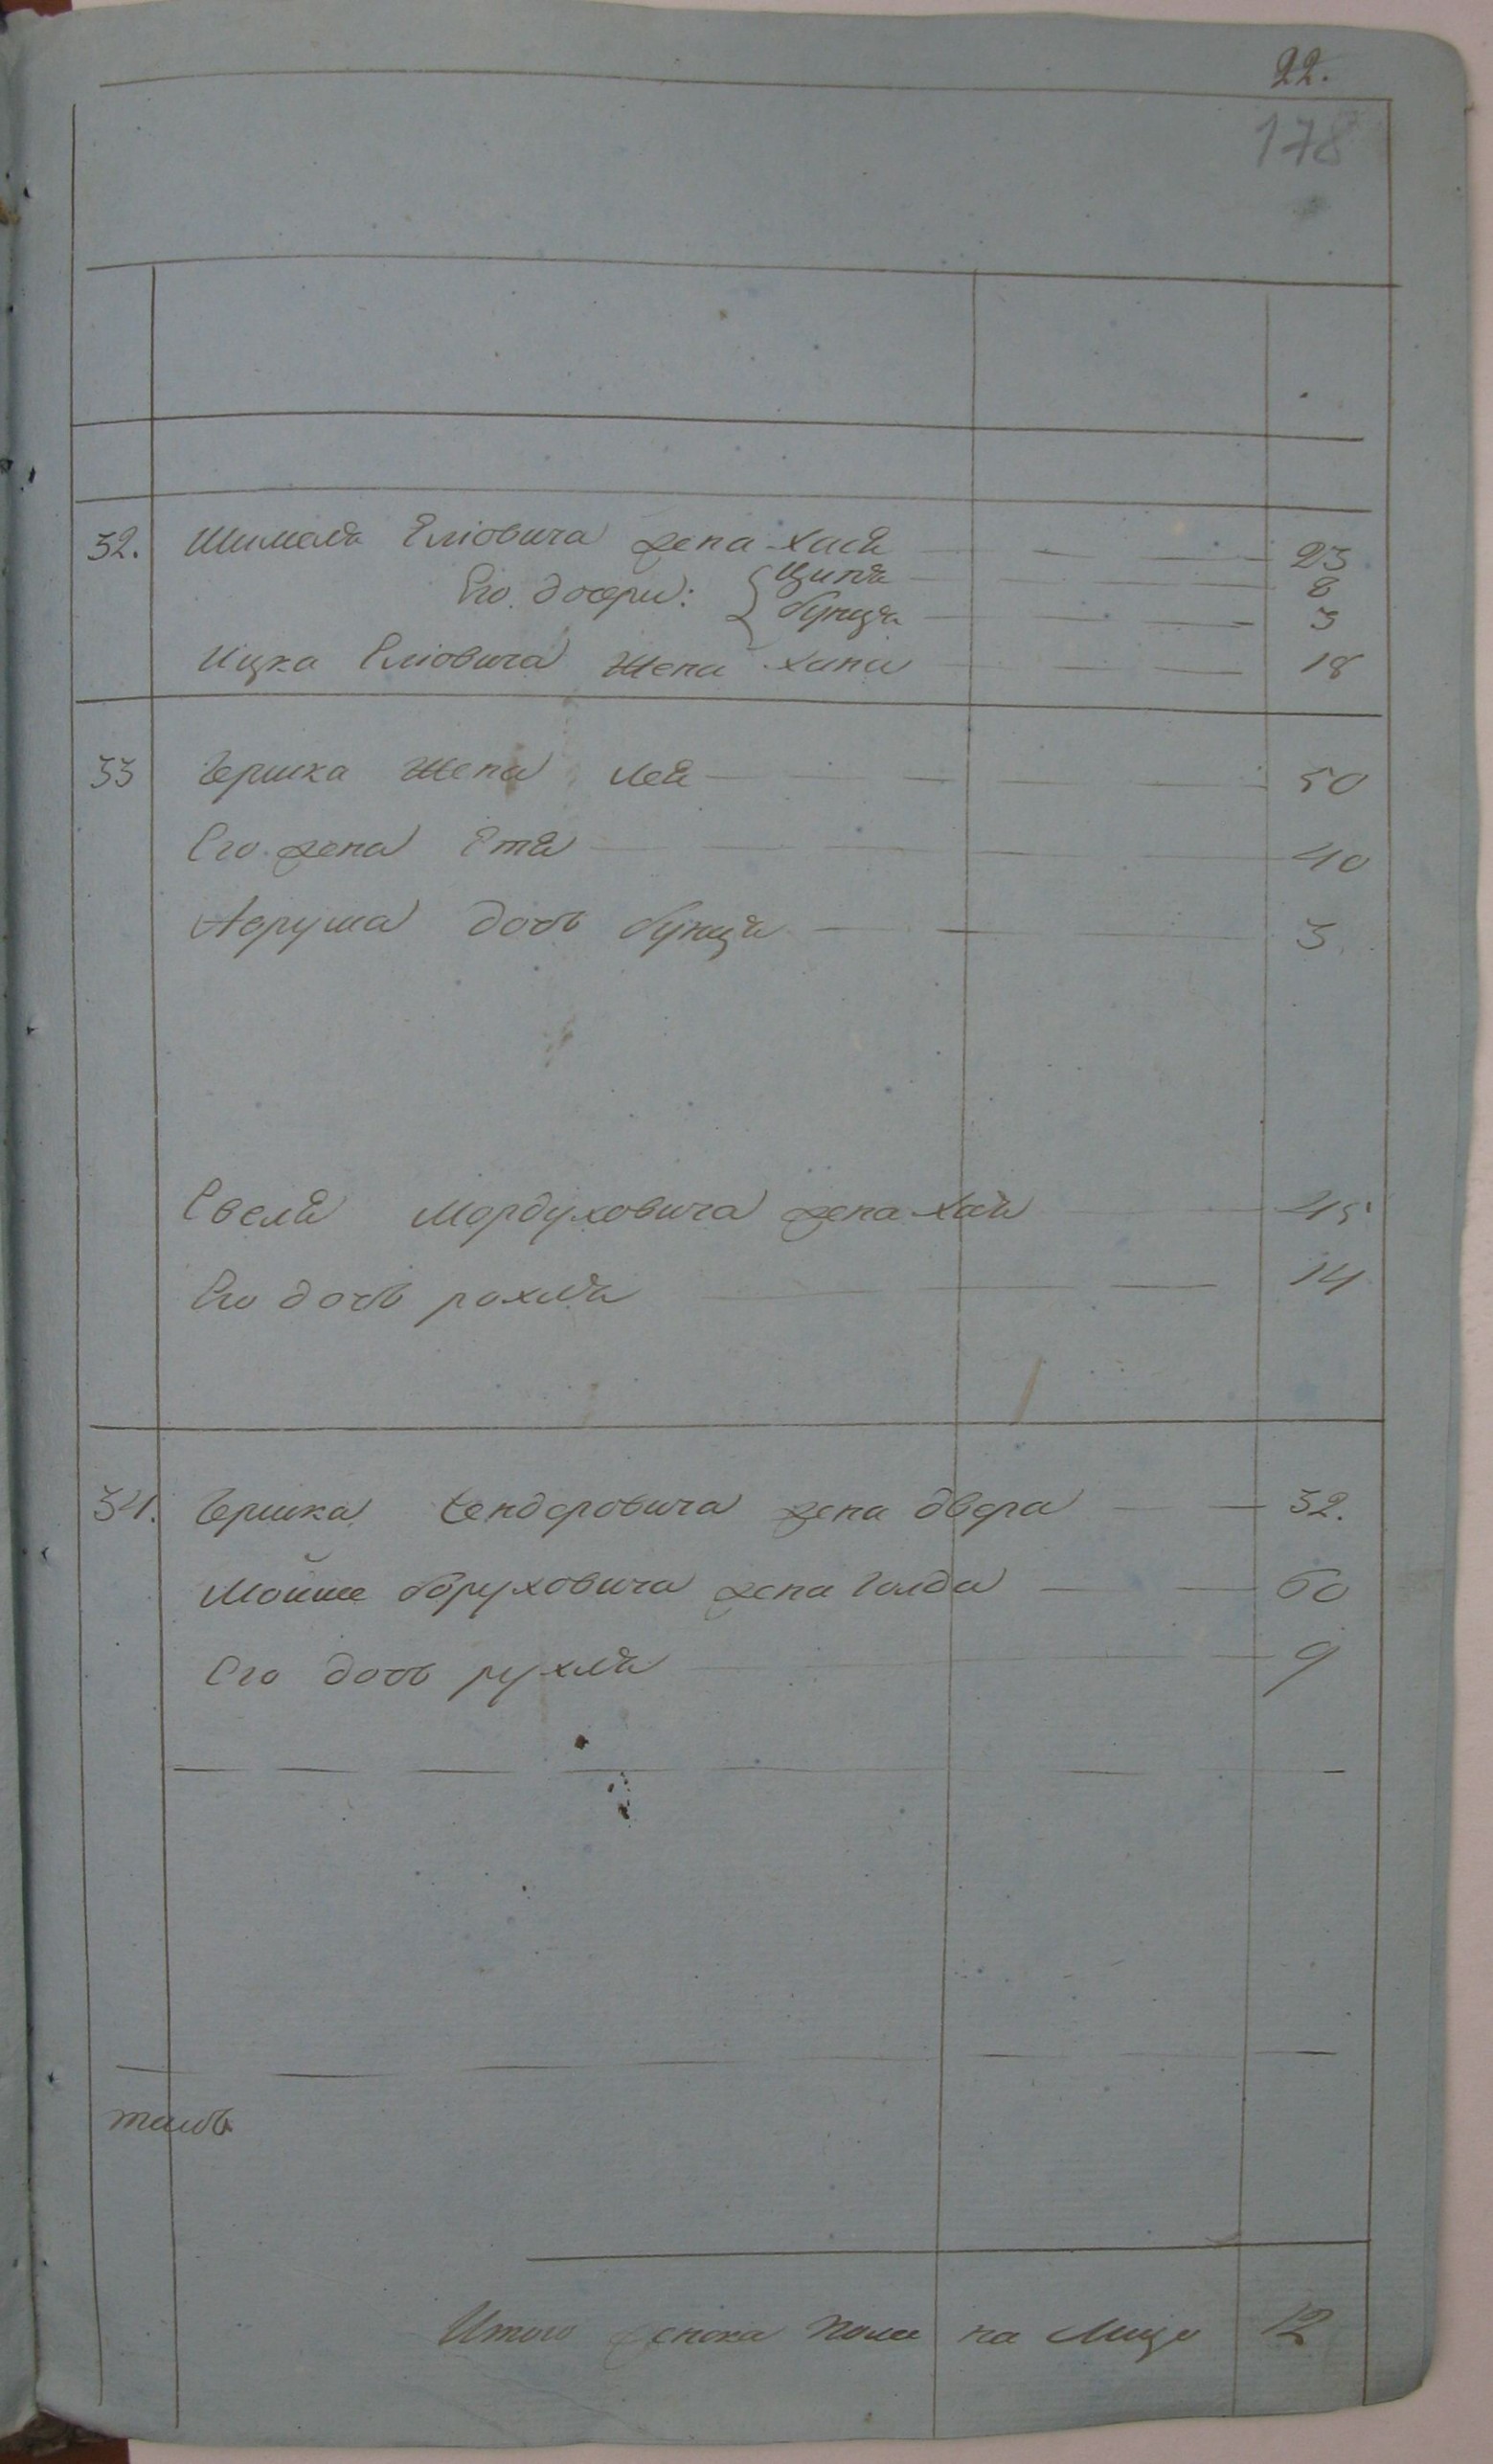 22.
178
32. Шмеля Еліовича жена Хася 23
Его дочери: Ципа 8
Бунця 3
Ицка Еліовича жена Хана 18
33 Гершка жена Лея 50
Его жена Етя 40
Авруша дочь Бунця 3
Евеля Мордуховича жена Хая 45
Его дочь Рохля 14
34. Гершка Сендеровича жена Двера 32.
Мойше Боруховича жена Голда 60
Его дочь Рухля 9
Итого женска пола на лицо 12